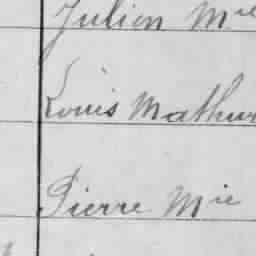 Julien Mie
Louis Mathur
Pierre Mie